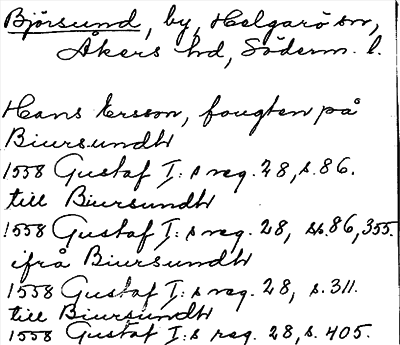 Björsund, by, Helgarö sn,
Åkers hd, Söderm. l.
Hans Ersson, fougten på
Biursundh
1558 Gustaf I:s reg. 28, s. 86.
till Biursundh
1558 Gustaf I:s reg. 28, ss. 86, 355.
ifrå Biursundh
1558 Gustaf I:s reg. 28, s. 311.
till Biursundh
1558 Gustaf I:s reg. 28, s. 405.